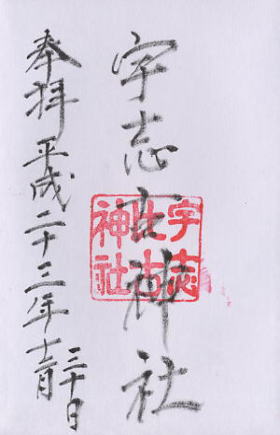 宇志比古神社
奉拝 平成二十三年十二月三十日
宇志
比古
神社